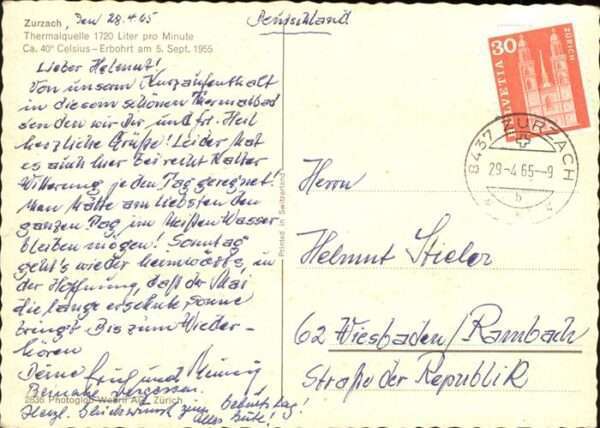 Zurzach, den 28.4.65
Thermalquelle 1720 Liter pro Minute
Ca. 40° Celsius – Erbohrt am 5. Sept. 1955
Lieber Helmut!
Von unserm Kurzaufenthalt
in diesem schönen Thermalbad
senden wir Dir und Frl. Heil
herzliche Grüße! Leider hat
es auch hier bei recht kalter
Witterung jeden Tag geregnet!
Man hätte am liebsten den
ganzen Tag im heißen Wasser
bleiben mögen! Sonntag
geht's wieder heimwärts, in
der Hoffnung, daß der Mai
die lange ersehnte Sonne
bringt. Bis zum Wieder-
hören
Deine und
Beinahe vergessen:
Herzl. Glückwunsch zum Geburtstag!
Alles Gute!
2836 Photoglob-Wehrli AG, Zürich
Printed in Switzerland
Deutschland
30
HELVETIA
ZÜRICH
8437 ZURZACH
29-4.65-9
b
Herrn
Helmut Stieler
62 Wiesbaden/Rambach
Straße der Republik